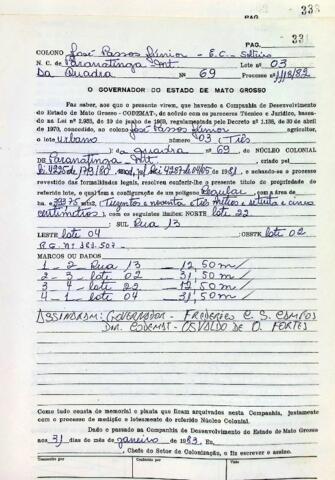 PAG. 333
PAG. 331
COLONO José Passos Júnior - E.C. - Solteiro
N. C. de Paranatinga Mt Lote nº 03
Da Quadra Nº 69 Processo nº
O GOVERNADOR DO ESTADO DE MATO GROSSO
Faz saber, aos que o presente virem, que havendo a Companhia de Desenvolvimento
do Estado de Mato Grosso - CODEMAT, de acôrdo com os pareceres Técnico e Jurídico, basea-
do na Lei nº 2.933, de 19 de junho de 1969, regulamentada pelo Decreto nº 1.138, de 30 de abril
de 1970, concedido, ao colono José Passos Júnior agricultor,
o lote urbano número 03 (Três
): da quadra nº 69 do NÚCLEO COLONIAL
de Paranatinga Mt, criado pela
Lei 4225 de e achando-se o processo
revestido das formalidades legais, resolveu conferir-lhe o presente título de propriedade
do referido lote, o qual tem a configuração de um polígono Regular, com a área de
mts2, (Trezentos e noventa e três metros e setenta e cinco
centímetros), com os seguintes limites: NORTE lote 22
SUL Rua 13
LESTE lote 04 OESTE lote 02
R.G. nº
MARCOS OU DADOS
1 - 2 Rua 13 12,50 m/
2 - 3 lote 02 31,50 m/
3 - 4 lote 22 12,50 m/
4 - 1 lote 04 31,50 m/
ASSINARAM: GOVERNADOR - FREDERICO C. S. CAMPOS
DIR. CODEMAT - OSVALDO DE O. FORTES
Como tudo consta do memorial e planta que ficam arquivados nesta Companhia, juntamente
com o processo de medição e loteamento do referido Núcleo Colonial.
Dado e passado na Companhia de Desenvolvimento do Estado de Mato Grosso
aos 31 dias do mês de janeiro de 1983. Eu,
, Chefe do Setor de Colonização, a fiz escrever e assino.
Transcrito por Conferido por Visto